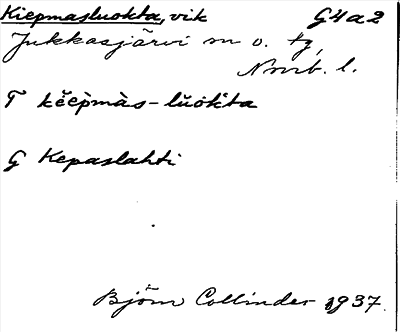 Kiepmasluokta, vik G4a2
Jukkasjärvi sn o. tg,
Nmrb. l.
T kĕepmàs-lŭokta
G Kepaslahti
Björn Collinder 1937.